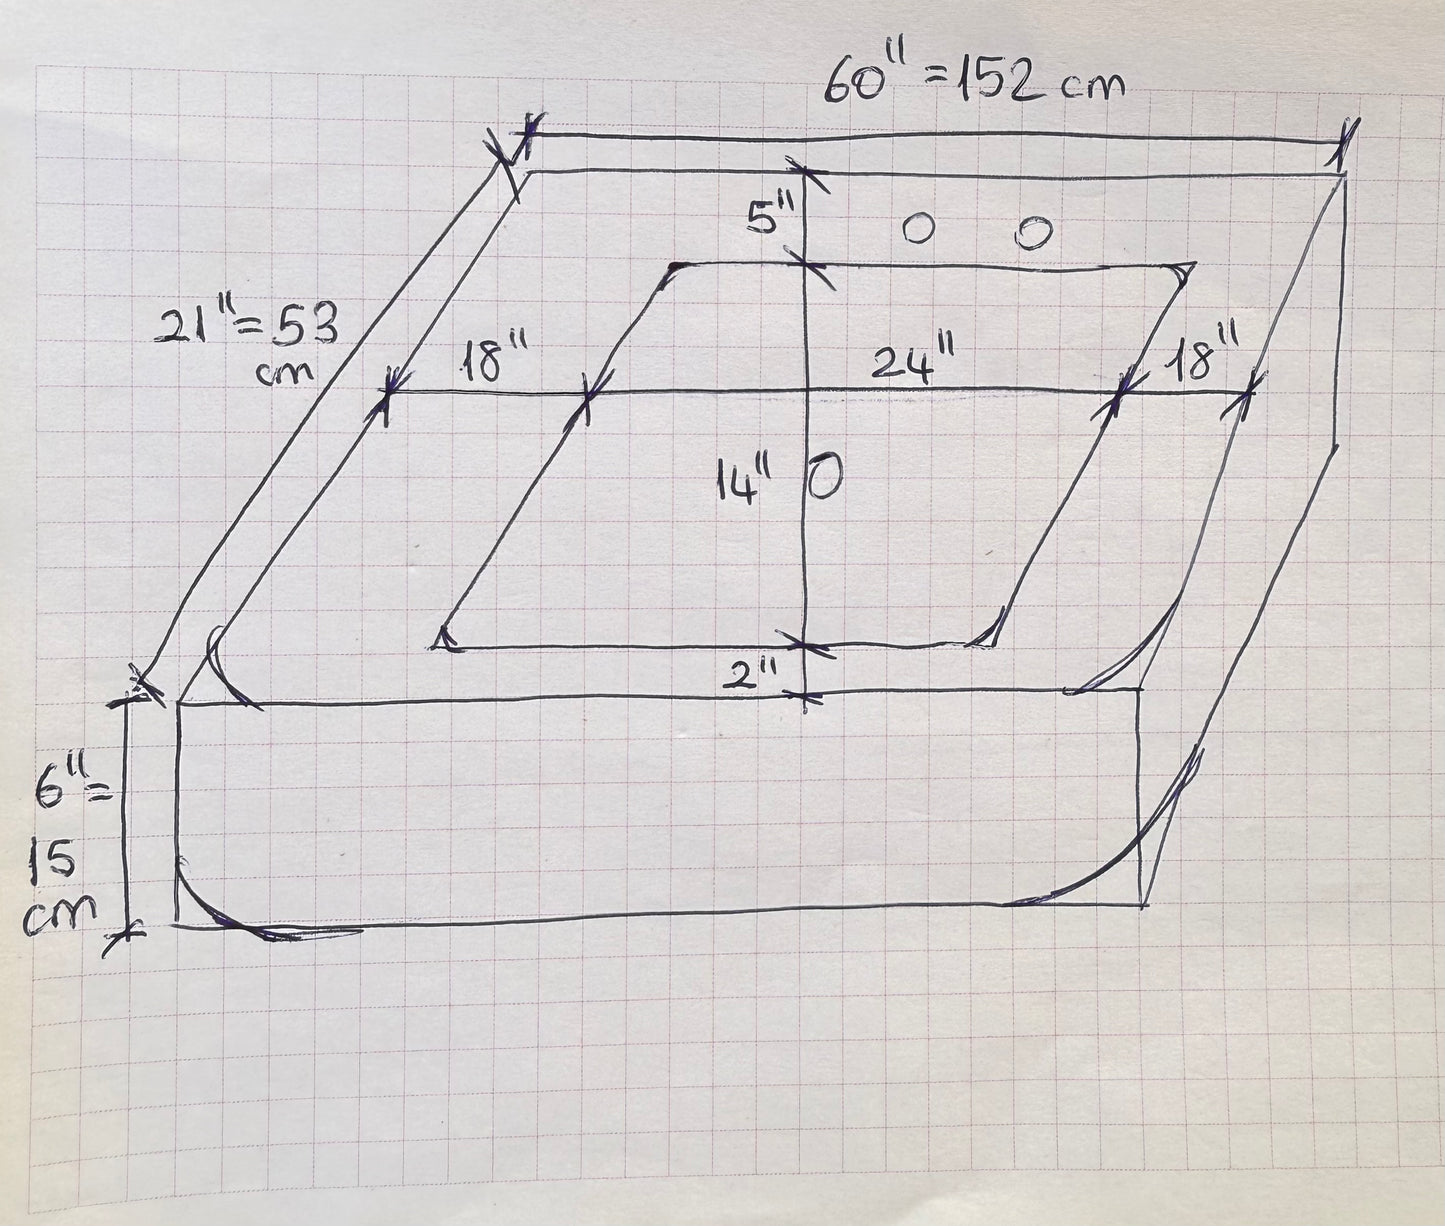 60" = 152 cm
5"
21" = 53
cm
18"
24"
18"
14"
2"
6" =
15
cm